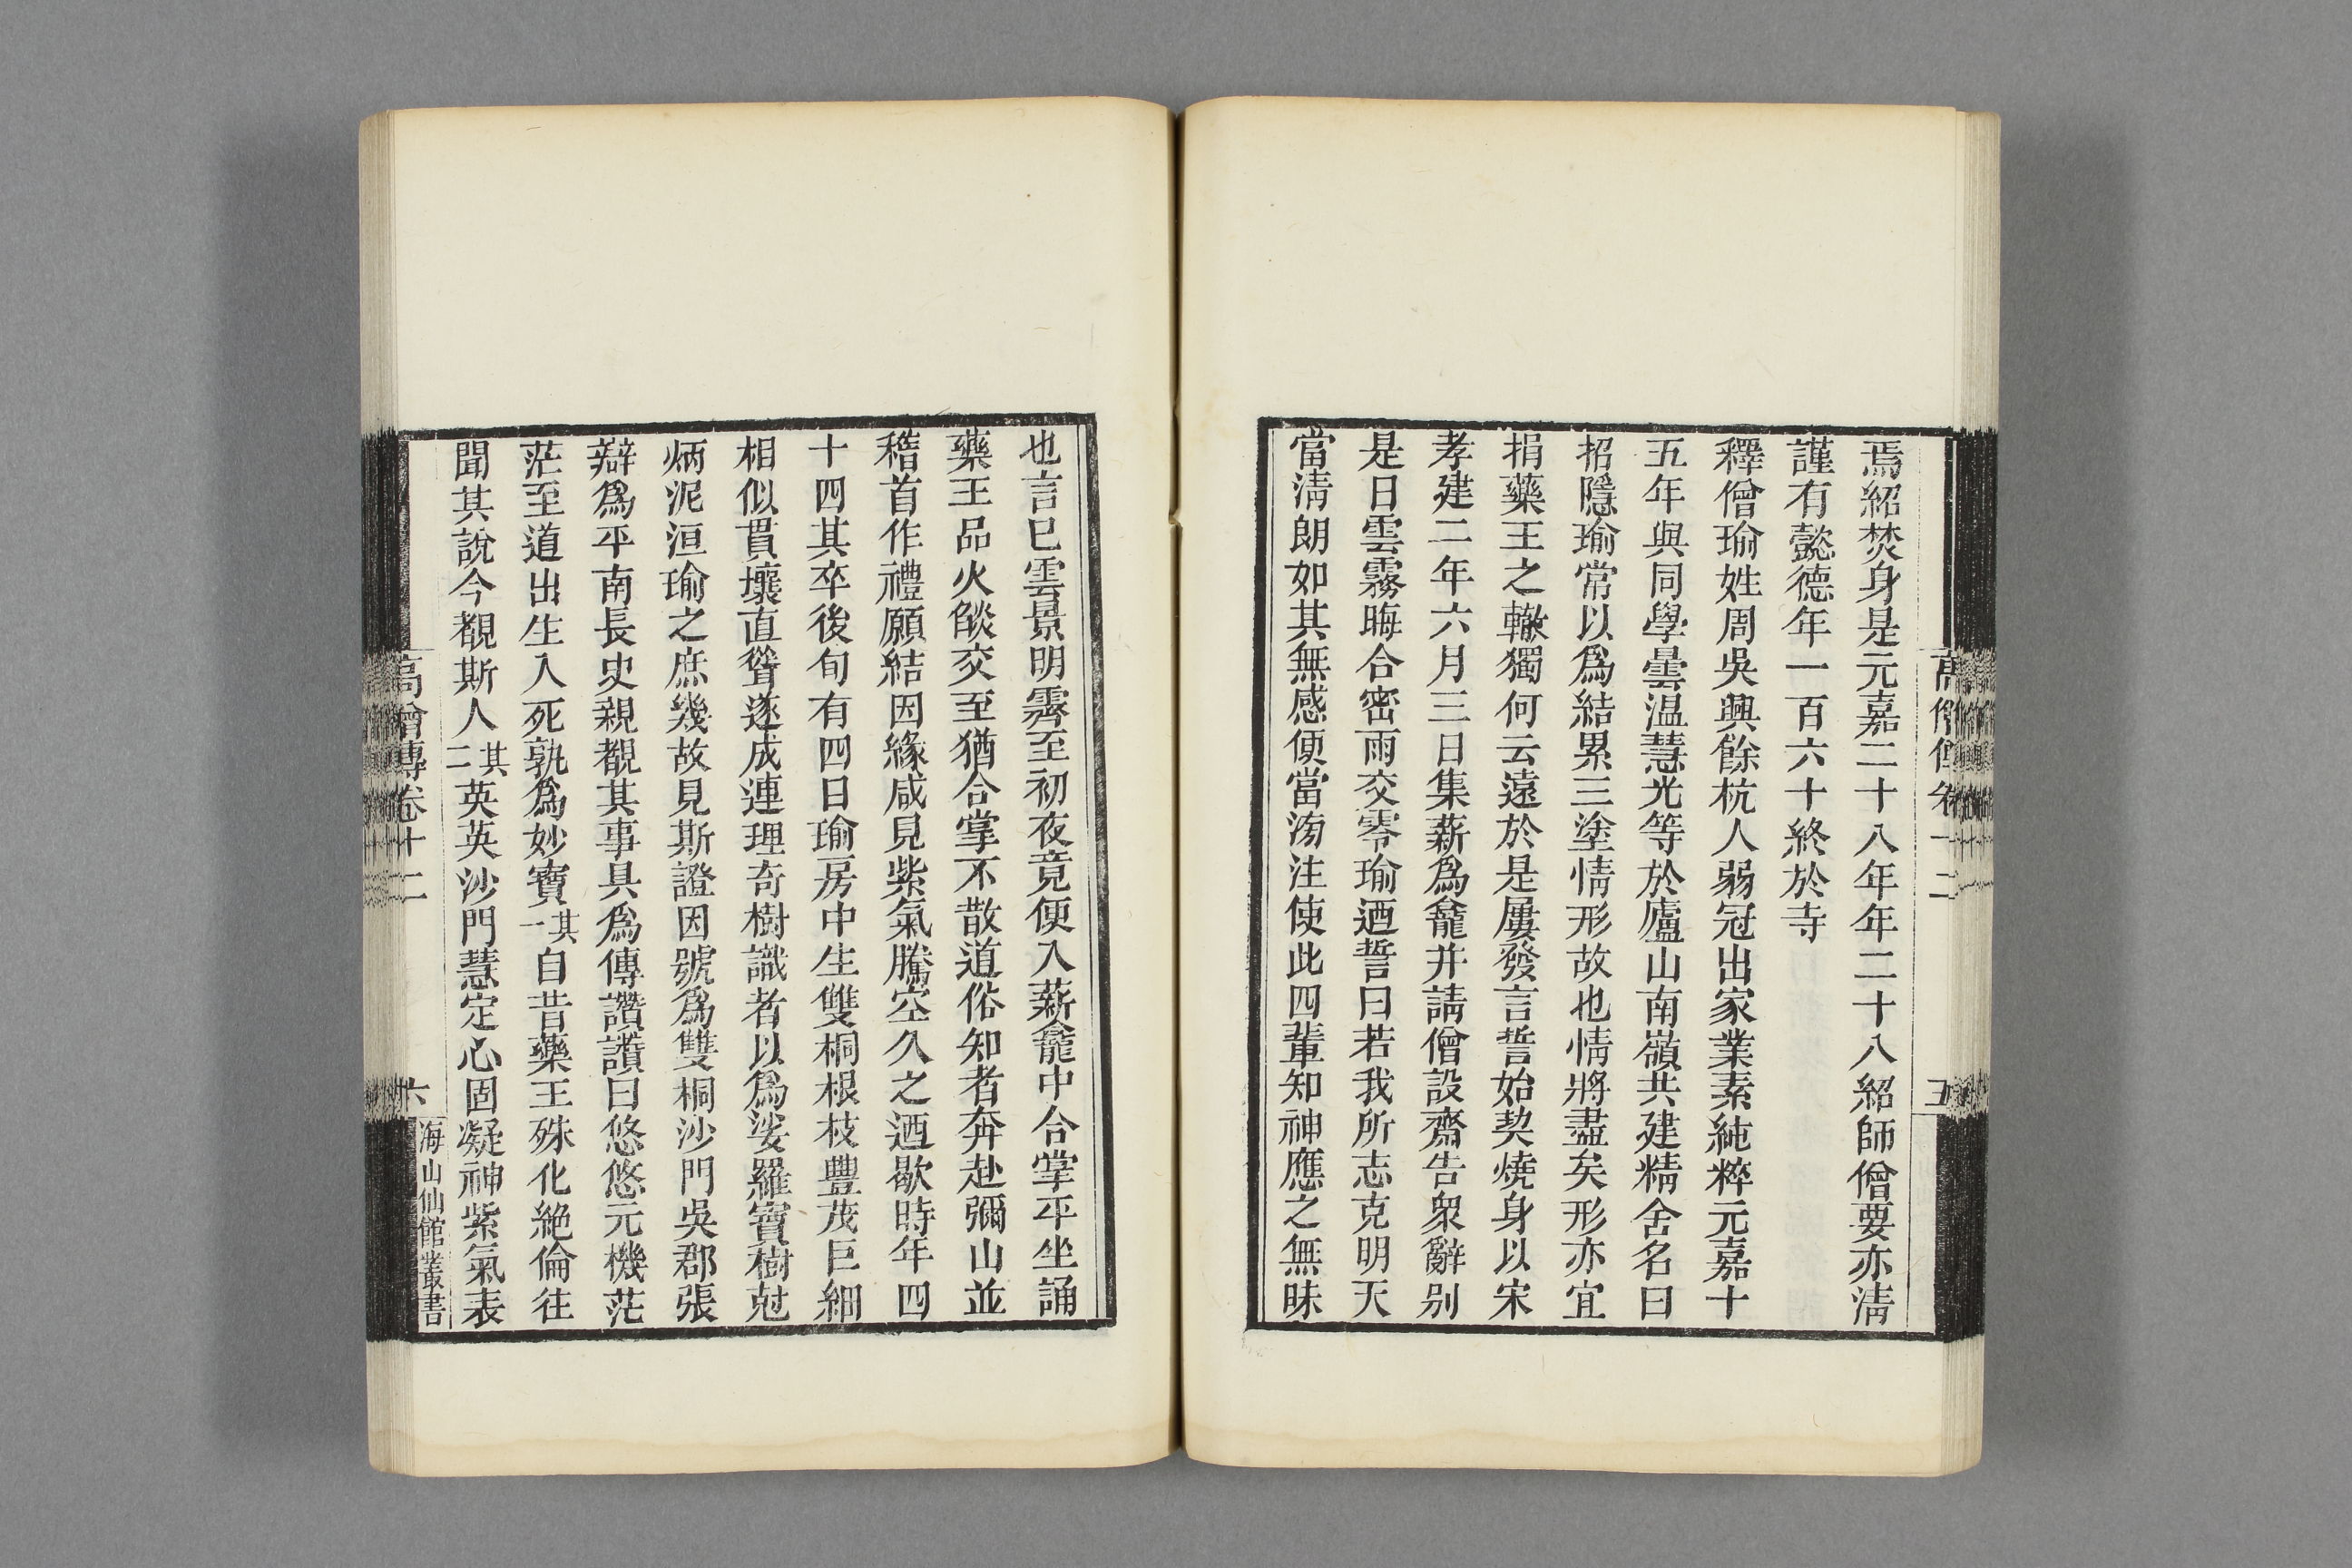 焉紹焚身是元嘉二十八年年二十八紹師僧要亦淸
謹有懿德年一百六十終於寺
釋僧瑜姓周吳興餘杭人弱冠出家業素純粹元嘉十
五年與同學曇温慧光等於廬山南嶺共建精舍名曰
招隱瑜常以爲結累三塗情形故也情將盡矣形亦宜
捐藥王之轍獨何云遠於是屢發言誓始契燒身以宋
孝建二年六月三日集薪爲龕并請僧設齋告衆辭别
是日雲霧晦合密雨交零瑜迺誓曰若我所志克明天
當淸朗如其無感便當滂注使此四輩知神應之無昧
高僧傳卷十二
五
也言已雲景明霽至初夜竟便入薪龕中合掌平坐誦
藥王品火燄交至猶合掌不散道俗知者奔赴彌山並
稽首作禮願結因緣咸見紫氣騰空久之迺歇時年四
十四其卒後旬有四日瑜房中生雙桐根枝豐茂巨細
相似貫壤直聳遂成連理奇樹識者以爲娑羅寶樹尅
炳泥洹瑜之庶幾故見斯證因號爲雙桐沙門吳郡張
辯爲平南長史親覩其事具爲傳讚讚曰悠悠元機茫
茫至道出生入死孰爲妙寶其一自昔藥王殊化絶倫往
聞其說今覩斯人其二英英沙門慧定心固凝神紫氣表
高僧傳卷十二
六
海山仙館叢書